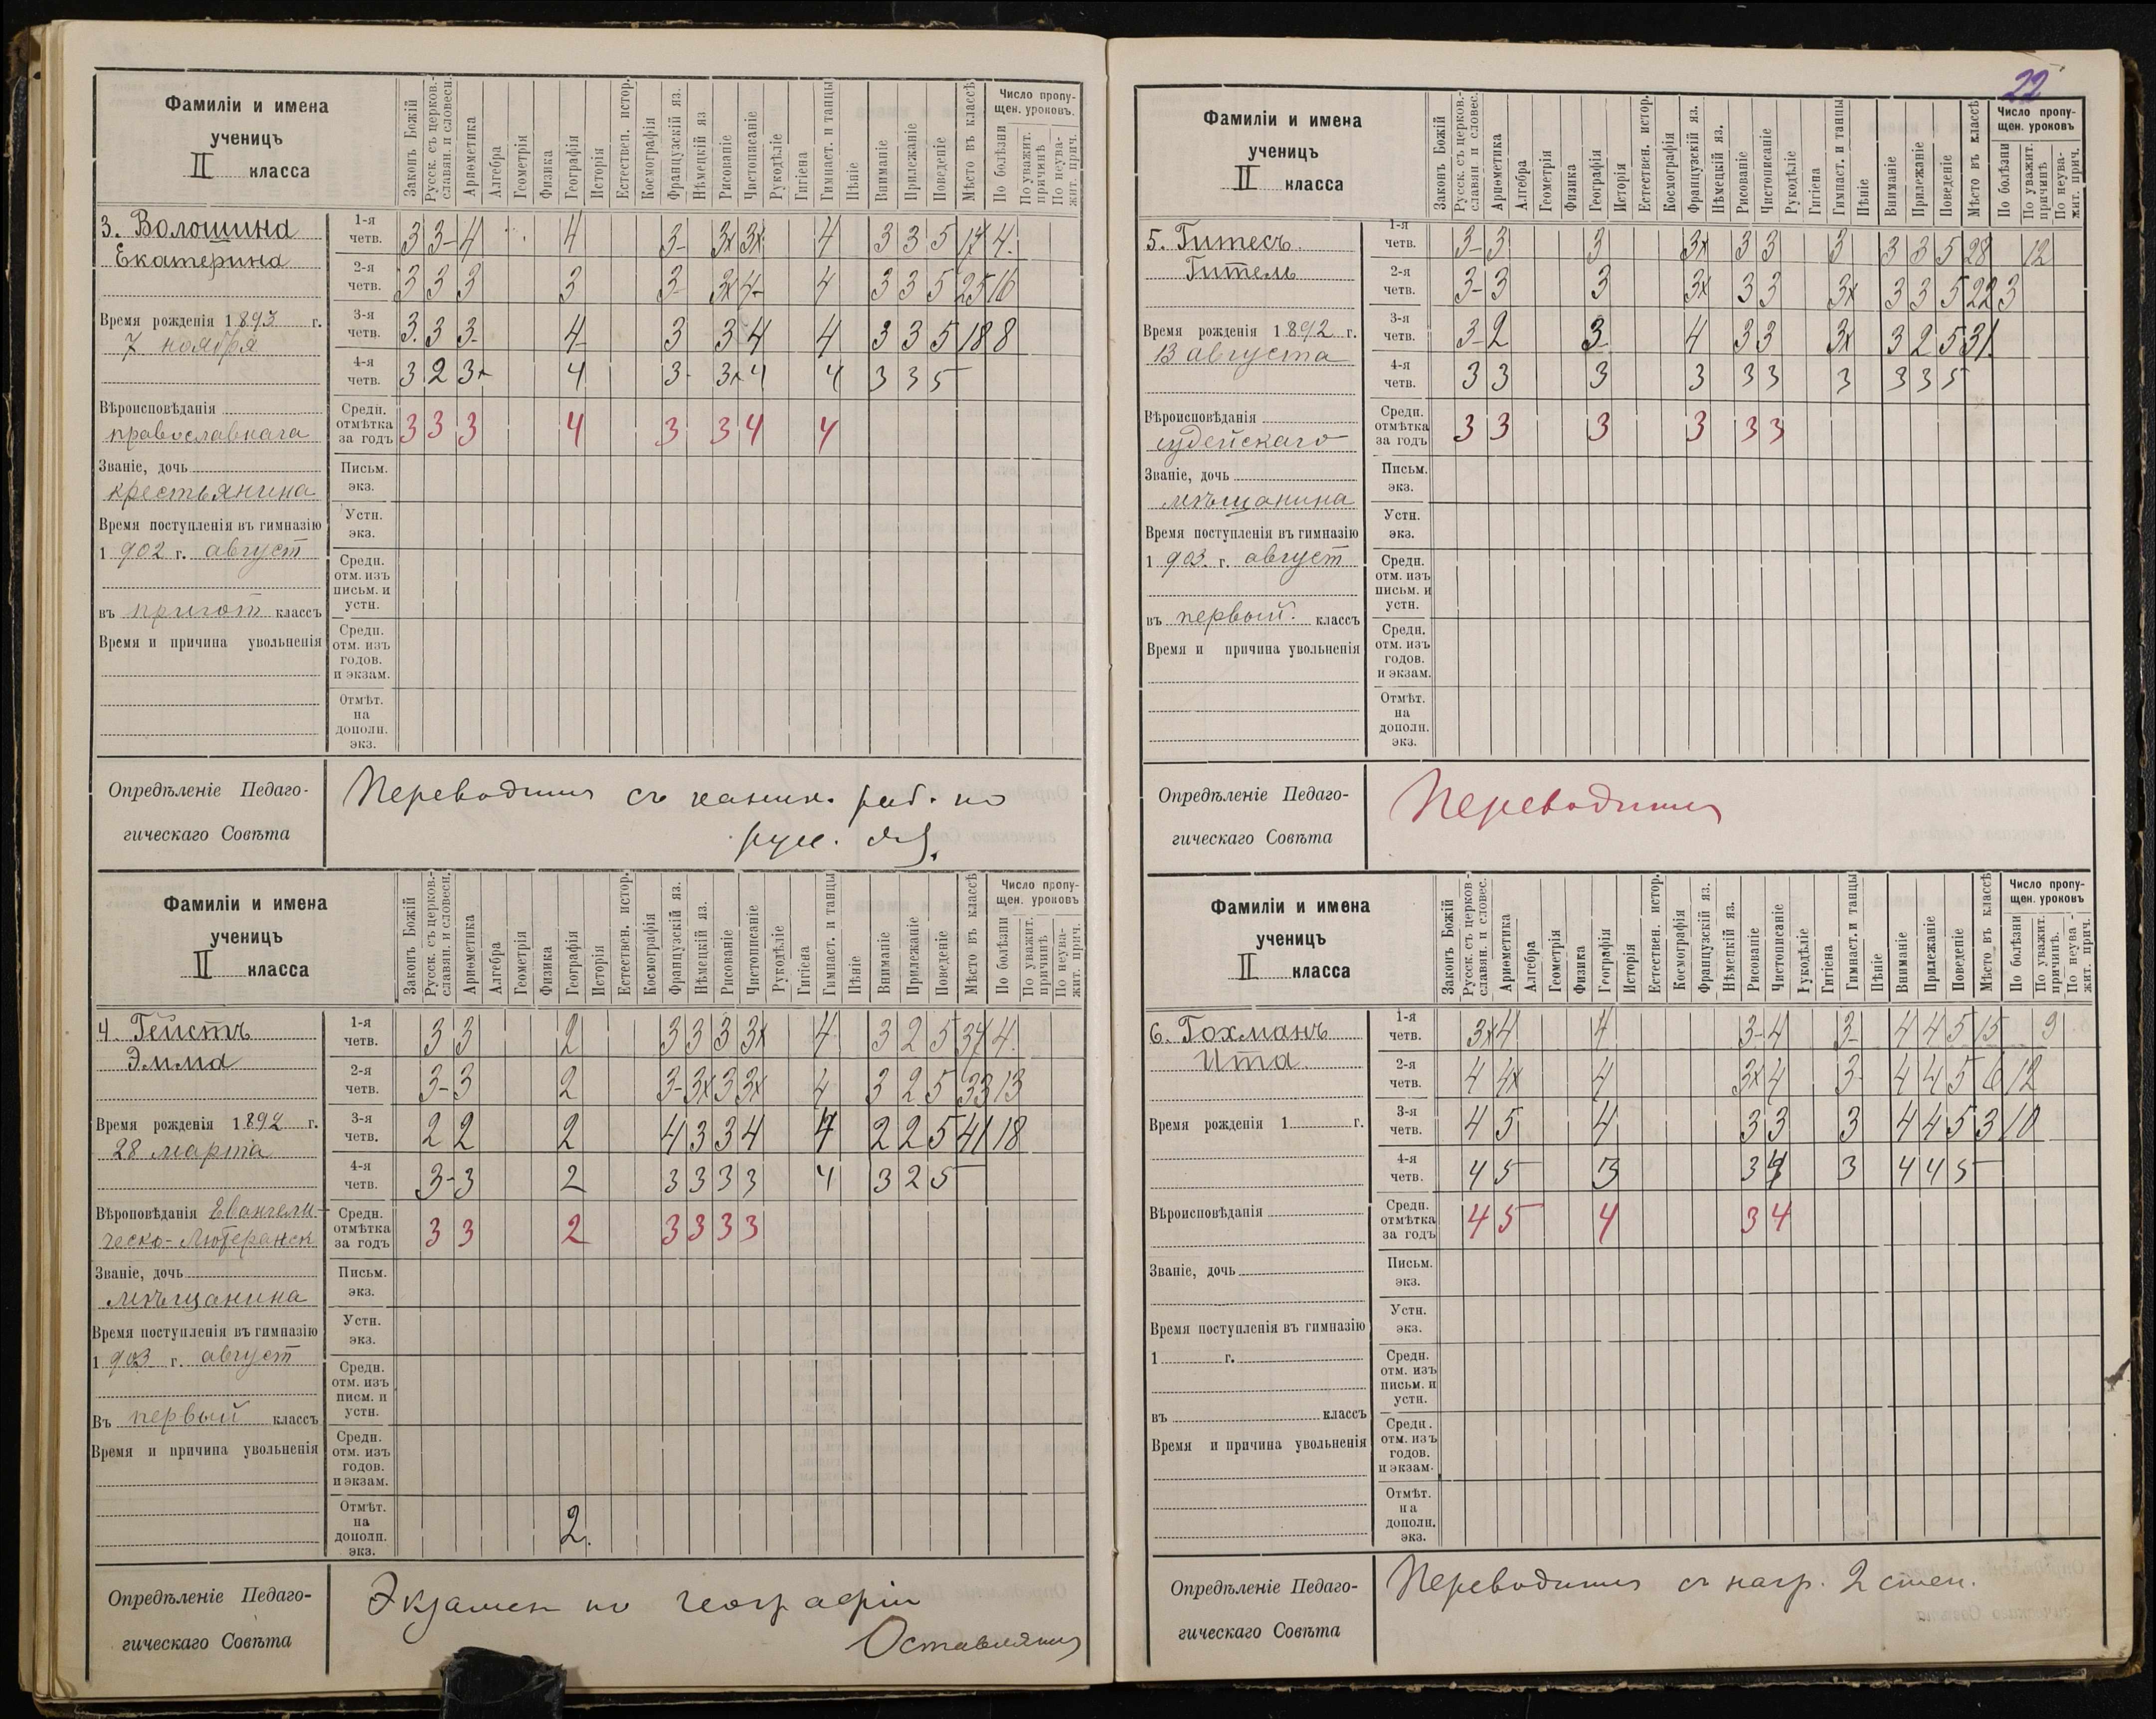 22
Фамиліи и имена
ученицъ
II класса
Законъ Божій
Русск. съ церков.-
славян. и словесн.
Ариөметика
Алгебра
Геометрія
Физика
Географія
Исторія
Естествен. истор.
Космографія
Французскій яз.
Нѣмецкій яз
Рисованіе
Чистописаніе
Рукодѣліе
Гигіена
Гимнаст. и танцы
Пѣніе
Вниманіе
Прилежаніе
Поведеніе
Мѣсто въ классѣ
Число пропу-
щен. уроковъ.
По болѣзни
По уважит.
причинѣ
По неува-
жит. прич.
3. Волошина
Екатерина
Время рожденія 1893 г.
7 ноября
Вѣроисповѣданія
православнаго
Званіе, дочь
крестьянина
Время поступленія въ гимназію
1902 г. август
въ пригот классъ
Время и причина увольненія
1-я четв. 3 3- 4 4 3- 3х 3х 4 3 3 5 17 4.
2-я четв. 3 3 3 3 3- 3х 4- 4 3 3 5 25 16
3-я четв. 3. 3 3- 4- 3 3 4 4 3 3 5 18 8
4-я четв. 3 2 3х 4 3- 3х 4 4 3 3 5
Средн. отмѣтка за годъ 3 3 3 4 3 3 4 4
Письм. экз.
Устн. экз.
Средн. отм. изъ письм. и устн.
Средн. отм. изъ годов. и экзам.
Отмѣт. на дополн. экз.
Опредѣленіе Педаго-
гическаго Совѣта
Переводится съ каник. раб. по
русс. яз.
Фамиліи и имена
ученицъ
II класса
Законъ Божій
Русск. съ церков.-
славян. и словесн.
Ариөметика
Алгебра
Геометрія
Физика
Географія
Исторія
Естествен. истор.
Космографія
Французскій яз.
Нѣмецкій яз.
Рисованіе
Чистописаніе
Рукодѣліе
Гигіена
Гимнаст. и танцы
Пѣніе
Вниманіе
Прилежаніе
Поведеніе
Мѣсто въ классѣ
Число пропу-
щен. уроковъ
По болѣзни
По уважит.
причинѣ
По неува-
жит. прич.
4. Гейстъ
Эмма
Время рожденія 1892 г.
28 марта
Вѣроповѣданія Евангели-
ческо-Лютеранск
Званіе, дочь
мѣщанина
Время поступленія въ гимназію
1903 г. август
Въ первый классъ
Время и причина увольненія
1-я четв. 3 3 2 3 3 3 3х 4 3 2 5 37 4.
2-я четв. 3- 3 2 3- 3х 3 3х 4 3 2 5 33 13
3-я четв. 2 2 2 4 3 3 4 4 2 2 5 41 18
4-я четв. 3- 3 2 3 3 3 3 4 3 2 5
Средн. отмѣтка за годъ 3 3 2 3 3 3 3
Письм. экз.
Устн. экз.
Средн. отм. изъ писм. и устн.
Средн. отм. изъ годов. и экзам.
Отмѣт. на дополн. экз. 2.
Опредѣленіе Педаго-
гическаго Совѣта
Экзамен по географіи
Оставляется
Фамиліи и имена
ученицъ
II класса
Законъ Божій
Русск. съ церков.-
славян. и словес.
Ариөметика
Алгебра
Геометрія
Физика
Географія
Исторія
Естествен. истор.
Космографія
Французскій яз.
Нѣмецкій яз.
Рисованіе
Чистописаніе
Рукодѣліе
Гигіена
Гимнаст. и танцы
Пѣніе
Вниманіе
Прилежаніе
Поведеніе
Мѣсто въ классѣ
Число пропу-
щен. уроковъ
По болѣзни
По уважит.
причинѣ
По неува-
жит. прич.
5. Гитесъ.
Гитель
Время рожденія 1892 г.
13 августа
Вѣроисповѣданія
іудейскаго
Званіе, дочь
мѣщанина
Время поступленія въ гимназію
1903. г. август
въ первый. классъ
Время и причина увольненія
1-я четв. 3- 3 3 3х 3 3 3 3 3 5 28 12
2-я четв. 3- 3 3 3х 3 3 3х 3 3 5 22 3
3-я четв. 3- 2 3- 4 3 3 3х 3 2 5 31.
4-я четв. 3 3 3 3 3 3 3 3 3 5
Средн. отмѣтка за годъ 3 3 3 3 3 3
Письм. экз.
Устн. экз.
Средн. отм. изъ письм. и устн.
Средн. отм. изъ годов. и экзам.
Отмѣт. на дополн. экз.
Опредѣленіе Педаго-
гическаго Совѣта
Переводится
Фамиліи и имена
ученицъ
II класса
Законъ Божій
Русск. съ церков-
славян. и словес.
Ариөметика
Алгебра
Геометрія
Физика
Географія
Исторія
Естествен. истор.
Космографія
Французскій яз.
Нѣмецкій яз.
Рисованіе
Чистописаніе
Рукодѣліе
Гигіена
Гимнаст. и танцы
Пѣніе
Вниманіе
Прилежаніе
Поведеніе
Мѣсто въ классѣ
Число пропу-
щен. уроковъ
По болѣзни
По уважит.
причинѣ.
По неува-
жит. прич.
6. Гохманъ
Ита.
Время рожденія 1 г.
Вѣроисповѣданія
Званіе, дочь
Время поступленія въ гимназію
1 г.
въ классъ
Время и причина увольненія
1-я четв. 3х 4 4 3- 4 3- 4 4 5 15 9
2-я четв. 4 4х 4 3х 4 3- 4 4 5 6 12
3-я четв. 4 5 4 3 3 3 4 4 5 3 10
4-я четв. 4 5 3 3 4 3 4 4 5
Средн. отмѣтка за годъ 4 5 4 3 4
Письм. экз.
Устн. экз.
Средн. отм. изъ письм. и устн.
Средн. отм. изъ годов. и экзам.
Отмѣт. на дополн. экз.
Опредѣленіе Педаго-
гическаго Совѣта
Переводится съ нагр. 2 степ.